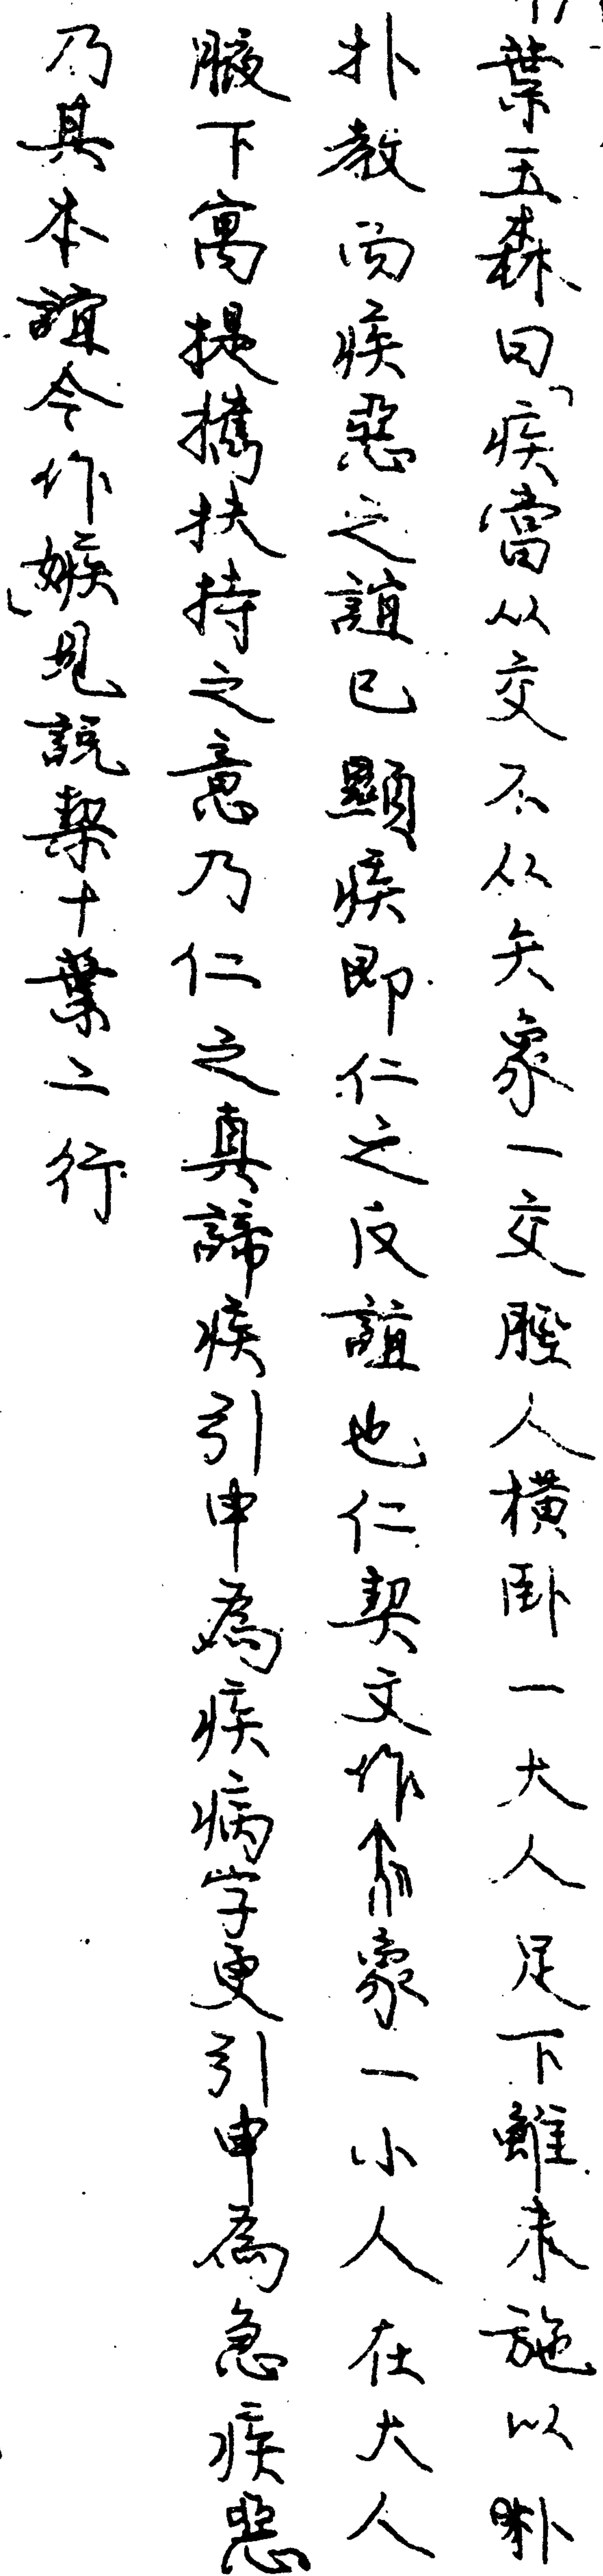 葉玉森曰「疾當从交不从矢象一交脛人橫卧一大人足下雖未施以
朴教而疾惡之誼已顯疾即仁之反誼也仁契文作象一小人在大人
腋下寓提攜扶持之意乃仁之真諦疾引申為疾病字更引申為急疾惡
乃其本誼今作嫉」見說契十葉二行